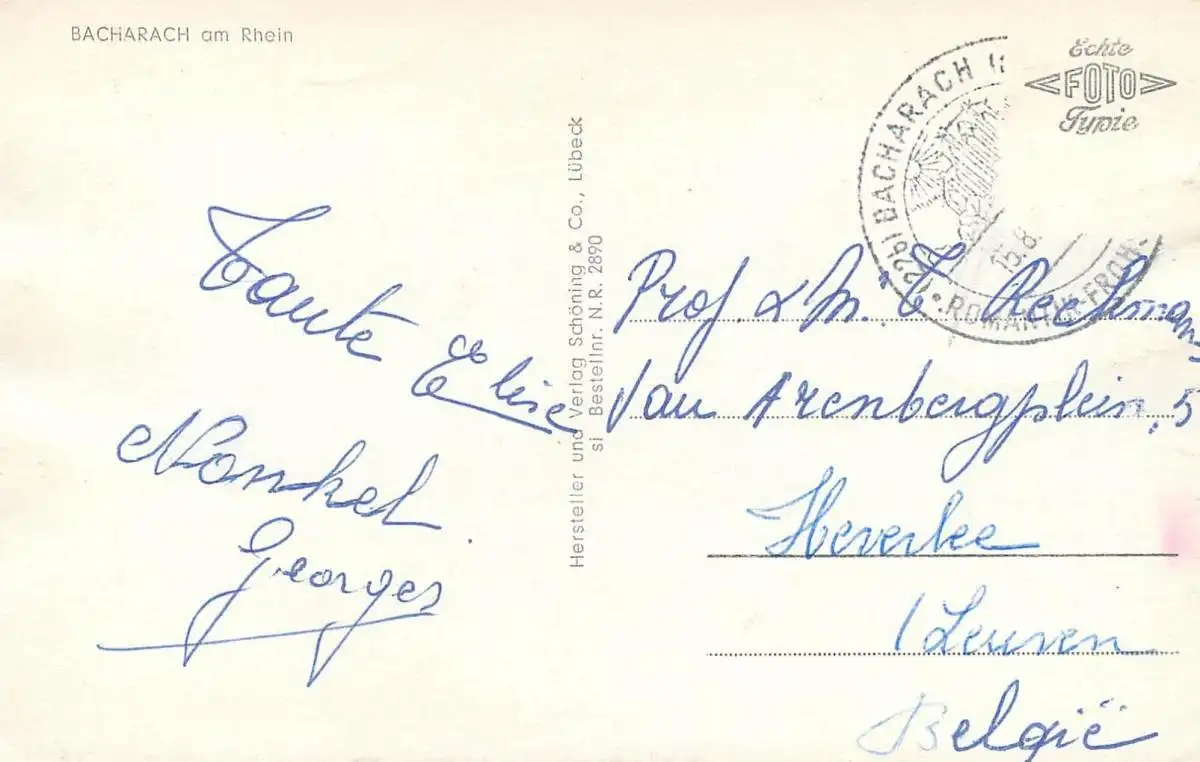 BACHARACH am Rhein
Echte
FOTO
Typie
(22b) BACHARACH
15.8.
ROMANTIK-FROH-
Tante Elise
Nonkel
Georges
Hersteller und Verlag Schöning & Co., Lübeck
si Bestellnr. N.R. 2890
Prof. & M.
Van Arenbergplein, 5
Heverlee
(Leuven
België